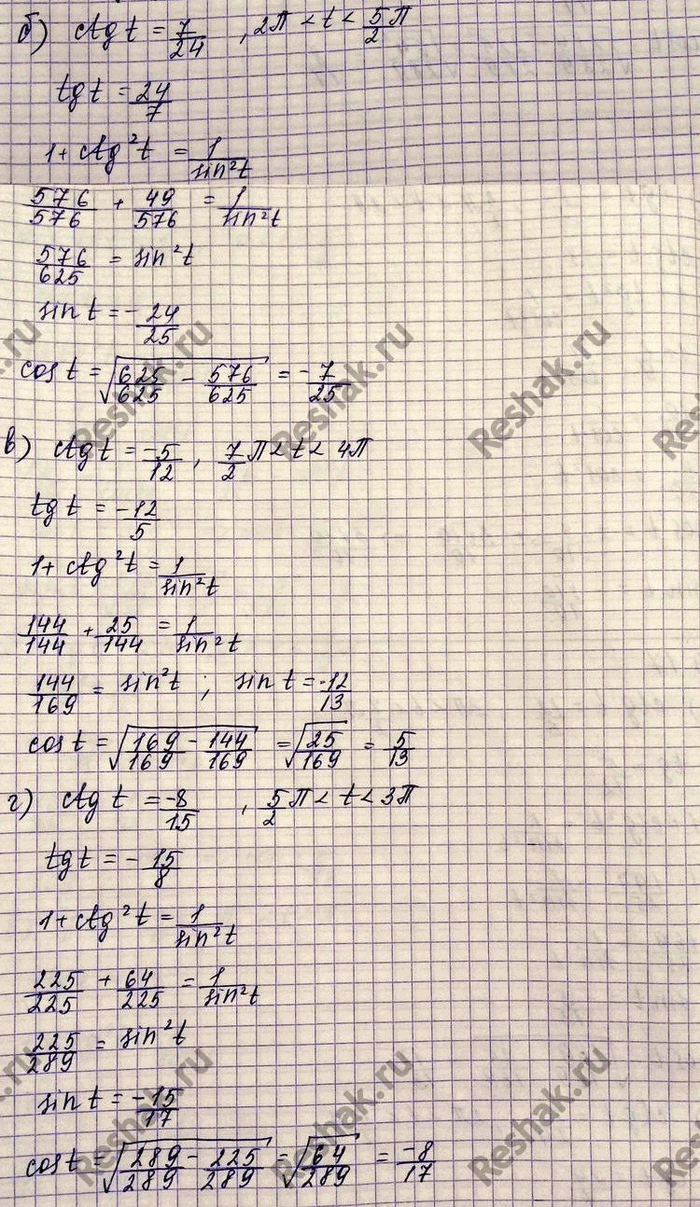 б) ctg t = 7/24 , 2π < t < 5/2 π
tg t = 24/7
1 + ctg²t = 1/sin²t
576/576 + 49/576 = 1/sin²t
576/625 = sin²t
sin t = -24/25
cos t = √(625/625 - 576/625) = -7/25
в) ctg t = -5/12 , 7/2 π < t < 4π
tg t = -12/5
1 + ctg²t = 1/sin²t
144/144 + 25/144 = 1/sin²t
144/169 = sin²t ; sin t = -12/13
cos t = √(169/169 - 144/169) = √(25/169) = 5/13
г) ctg t = -8/15 , 5/2 π < t < 3π
tg t = -15/8
1 + ctg²t = 1/sin²t
225/225 + 64/225 = 1/sin²t
225/289 = sin²t
sin t = -15/17
cos t = √(289/289 - 225/289) = √(64/289) = -8/17
Reshak.ru
Reshak.ru
Reshak.ru
Reshak.ru
Reshak.ru
Reshak.ru